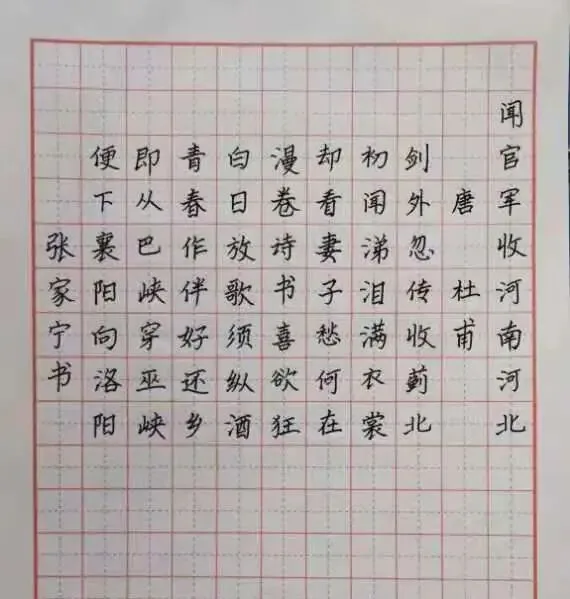 闻官军收河南河北
唐杜甫
剑外忽传收蓟北
初闻涕泪满衣裳
却看妻子愁何在
漫卷诗书喜欲狂
白日放歌须纵酒
青春作伴好还乡
即从巴峡穿巫峡
便下襄阳向洛阳
张家宁书